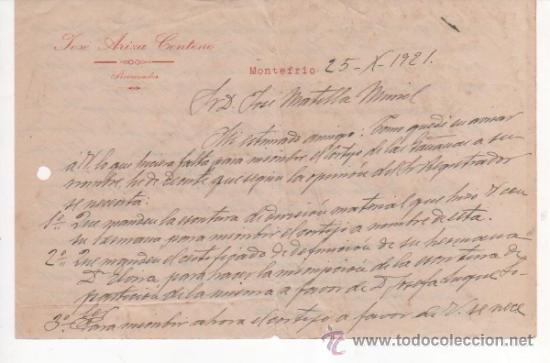 José Ariza Centeno
Procurador
Montefrio 25-X-1921.
Sr D. José Matilla Muriel
Mi estimado amigo: Como quedé en avisar
a V. lo que hiciera falta para inscribir el cortijo de las a su
nombre, he de decirle que según la opinión del Sr Registrador
se necesita:
1º Que manden la escritura de división material que hizo V. con
su hermano para inscribir el cortijo a nombre de esta.
2º Que me den el certificado de defunción de su hermana
Dª Elvira para hacer la inscripción de la escritura de
partición de la misma a favor de D. Josefa Luque
3º Para inscribir ahora el cortijo a favor de V. se nece
todocoleccion.net